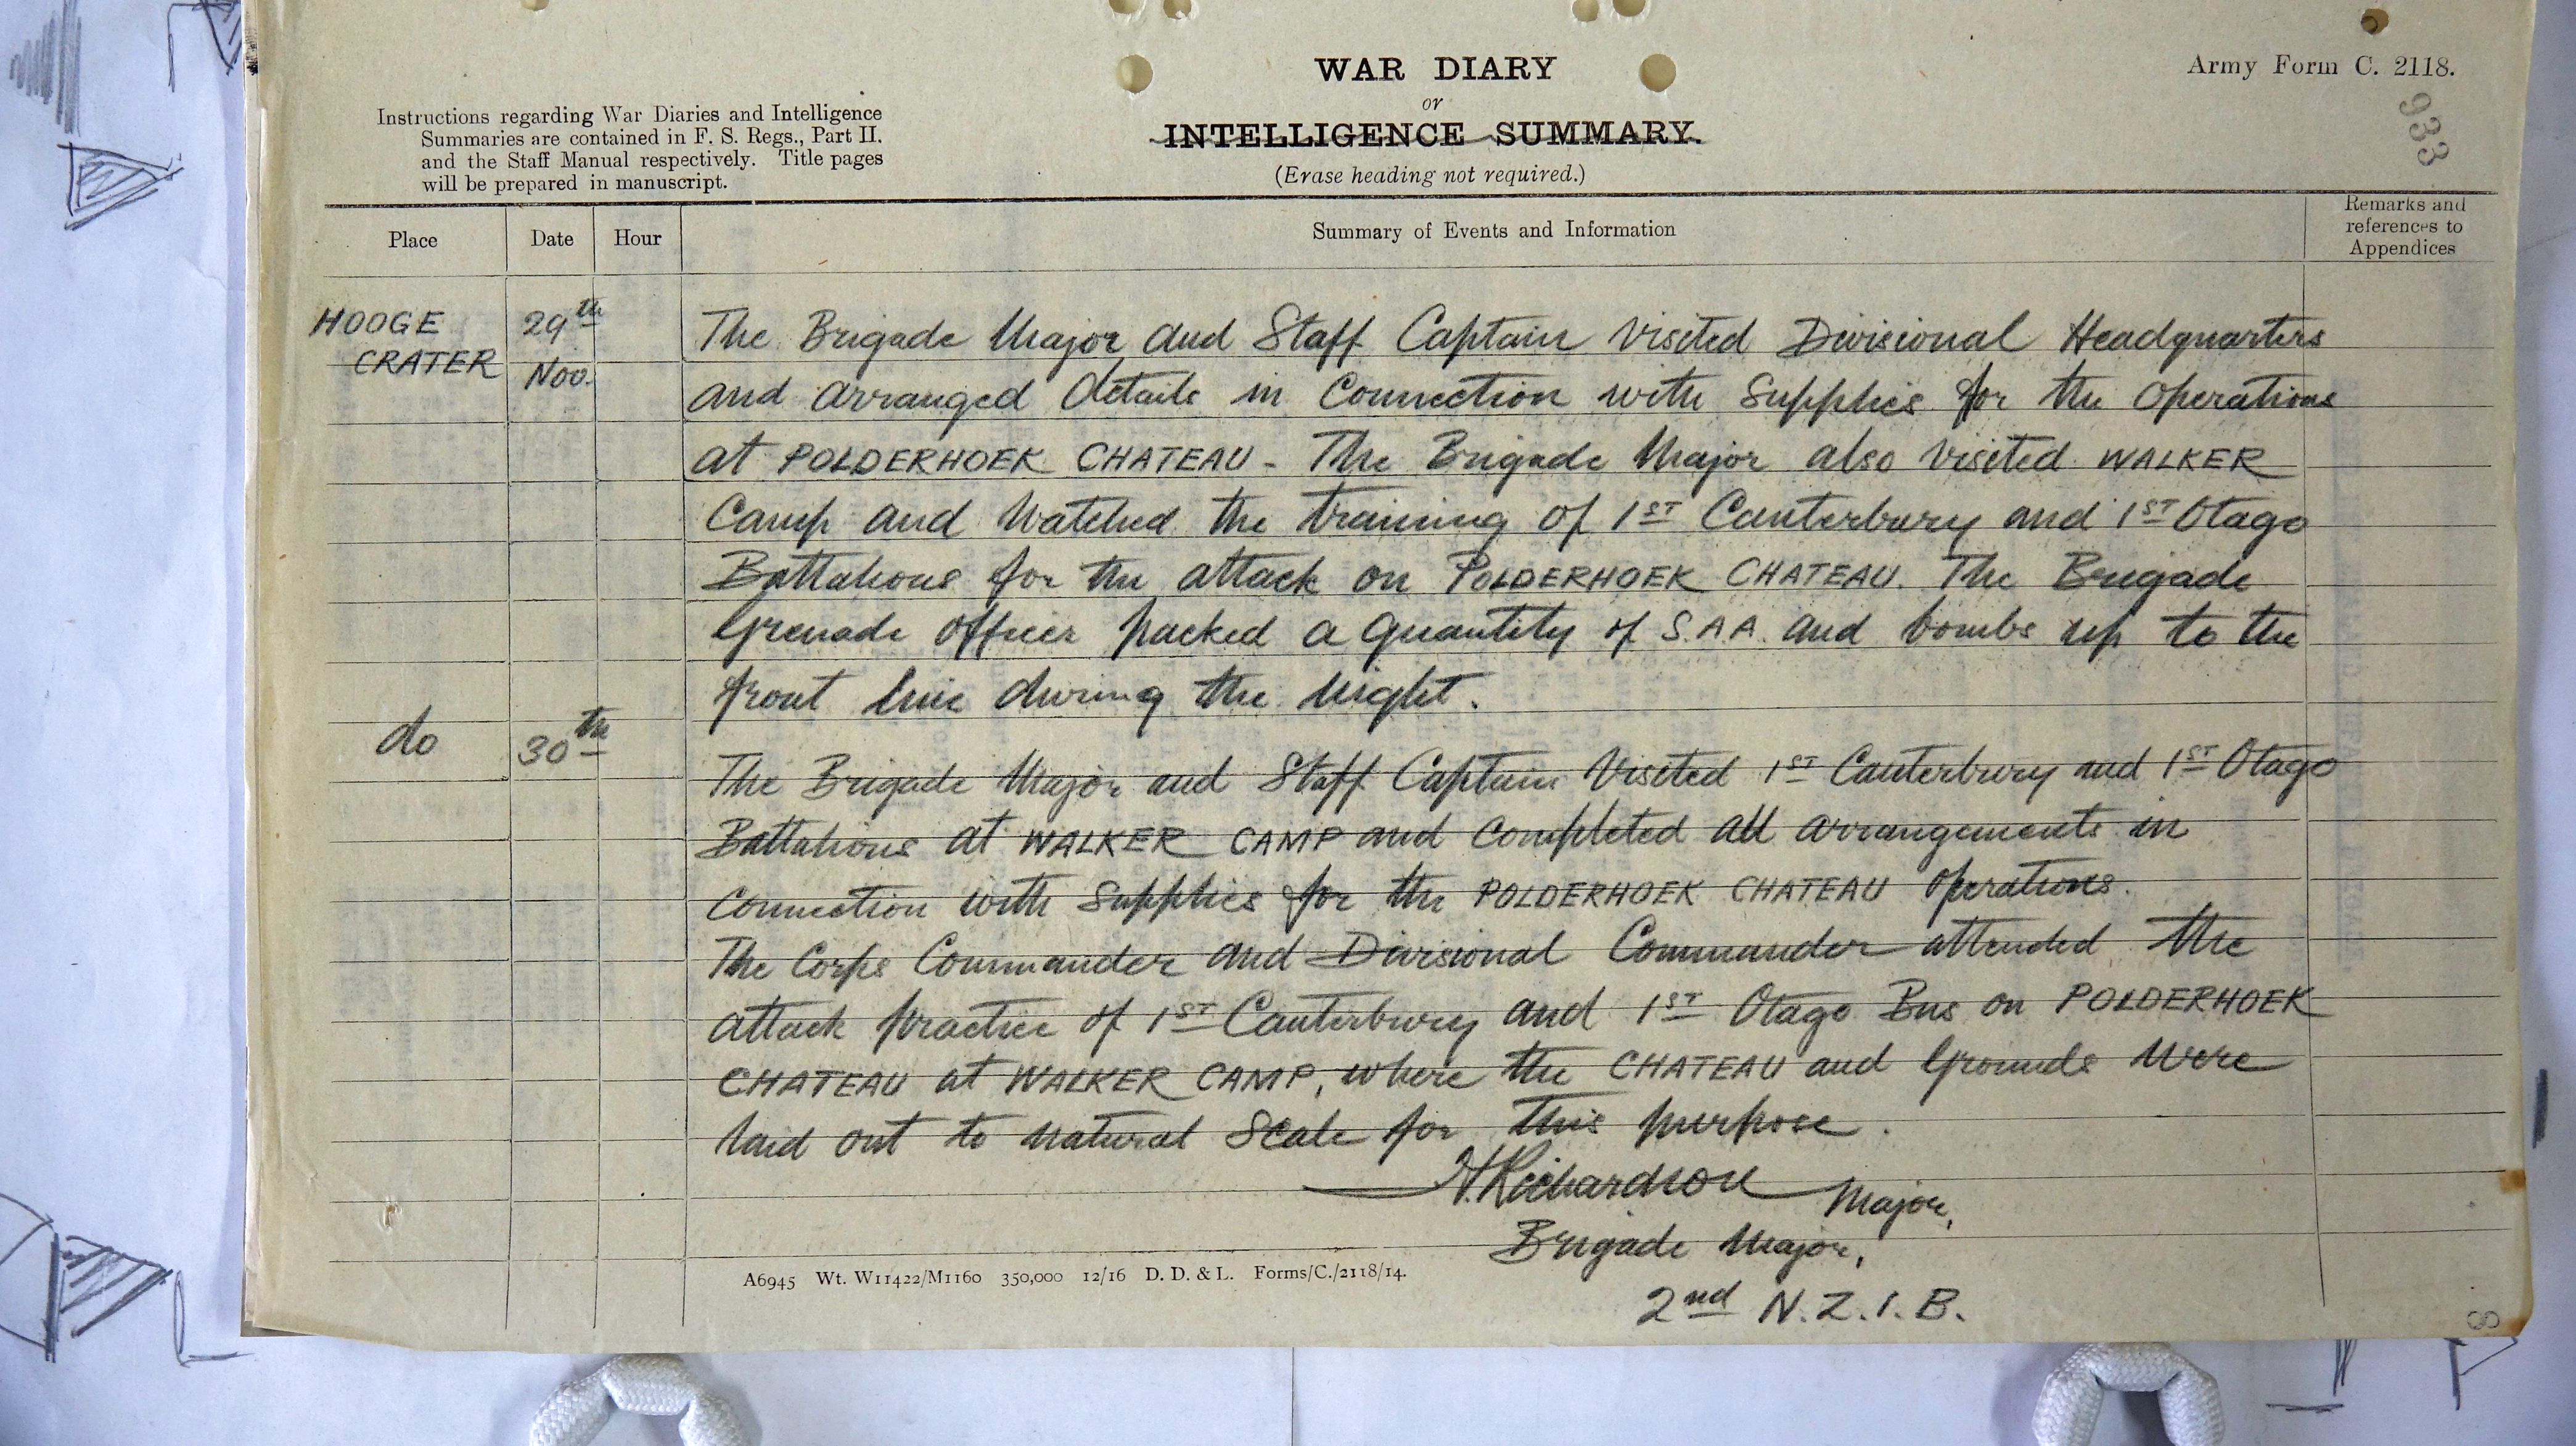 WAR DIARY
or
INTELLIGENCE SUMMARY.
(Erase heading not required.)
Army Form C. 2118.
933
Instructions regarding War Diaries and Intelligence
Summaries are contained in F. S. Regs., Part II.
and the Staff Manual respectively. Title pages
will be prepared in manuscript.
Place Date Hour Summary of Events and Information Remarks and references to Appendices
HOOGE CRATER 29th Nov. The Brigade Major and Staff Captain visited Divisional Headquarters
and arranged details in connection with supplies for the operations
at POLDERHOEK CHATEAU - The Brigade Major also visited WALKER
Camp and watched the training of 1ST Canterbury and 1ST Otago
Battalions for the attack on POLDERHOEK CHATEAU. The Brigade
Grenade Officer packed a quantity of S.A.A. and bombs up to the
front line during the night.
do 30th The Brigade Major and Staff Captain visited 1ST Canterbury and 1ST Otago
Battalions at WALKER CAMP and completed all arrangements in
connection with supplies for the POLDERHOEK CHATEAU operations.
The Corps Commander and Divisional Commander attended the
attack practice of 1ST Canterbury and 1ST Otago Bns on POLDERHOEK
CHATEAU at WALKER CAMP, where the CHATEAU and grounds were
laid out to natural scale for this purpose.
H. Richardson Major,
Brigade Major,
2nd N.Z.I.B.
A6945 Wt. W11422/M1160 350,000 12/16 D. D. & L. Forms/C./2118/14.
8